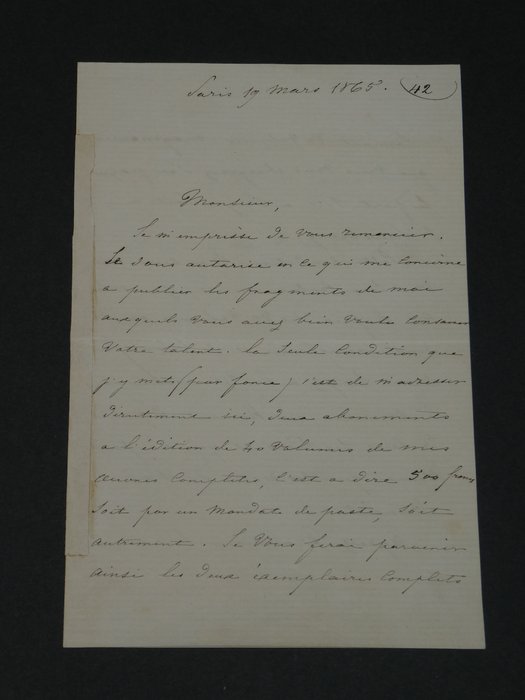 Paris 19 mars 1865. 42
Monsieur,
Je m'empresse de vous remercier.
Je vous autorise en ce qui me concerne
a publier les fragments de moi
auxquels vous avez bien voulu consacrer
votre talent. la seule condition que
j'y mets (par force) c'est de m'adresser
directement ici, deux abonements
a l'édition de 40 volumes de mes
œuvres complètes, c'est a dire 500 francs
soit par un mandat de poste, soit
autrement. Je vous ferai parvenir
ainsi les deux éxemplaires complets